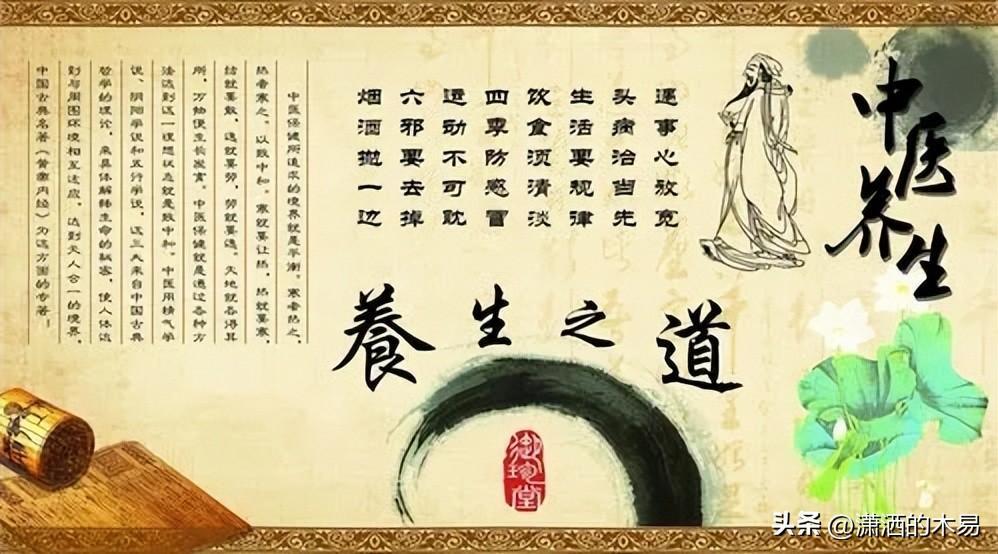 中医养生
遇事心放宽
头病治当先
生活要规律
饮食须清淡
四季防感冒
运动不可眈
六邪要去掉
烟酒抛一边
養生之道
中医保健所追求的境界就是平衡。寒者热之，
热者寒之。以致中和。寒就要让热，热就要寒，
结就要散，逸就要劳，劳就要逸。天地就各得其
所，万物便生长发育。中医保健就是通过各种方
法达到这一理想状态就是致中和。中医用精气学
说、阴阳学说和五行学说，这三大来自中国古典
哲学的理论，来具体解释生命的秘密，使人体达
到与周围环境相互适应，达到天人合一的境界。
中国古典名著《黄帝内经》为这方面的专著！
头条 @潇洒的木易